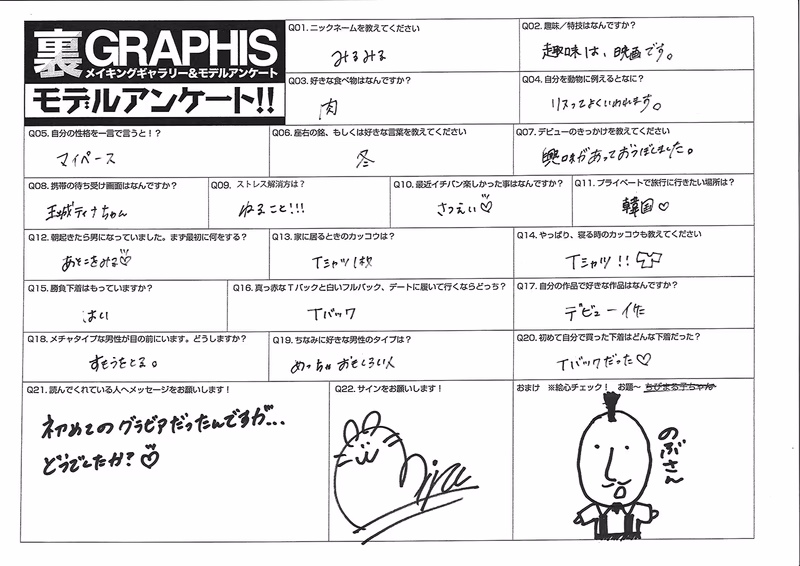 裏GRAPHIS
メイキングギャラリー&モデルアンケート
モデルアンケート!!
Q01. ニックネームを教えてください
みるみる
Q02. 趣味/特技はなんですか?
趣味は、映画です。
Q03. 好きな食べ物はなんですか?
肉
Q04. 自分を動物に例えるとなに?
リスってよくいわれます。
Q05. 自分の性格を一言で言うと!?
マイペース
Q06. 座右の銘、もしくは好きな言葉を教えてください
冬
Q07. デビューのきっかけを教えてください
興味があっておうぼしました。
Q08. 携帯の待ち受け画面はなんですか?
玉城ティナちゃん
Q09. ストレス解消方は?
ねること!!!
Q10. 最近イチバン楽しかった事はなんですか?
さつえい♡
Q11. プライベートで旅行に行きたい場所は?
韓国♡
Q12. 朝起きたら男になっていました。まず最初に何をする?
あそこをみる♡
Q13. 家に居るときのカッコウは?
Tシャツ1枚
Q14. やっぱり、寝る時のカッコウも教えてください
Tシャツ!!
Q15. 勝負下着はもっていますか?
はい
Q16. 真っ赤なTバックと白いフルバック、デートに履いて行くならどっち?
Tバック
Q17. 自分の作品で好きな作品はなんですか?
デビュー作
Q18. メチャタイプな男性が目の前にいます。どうしますか?
すもうをとる。
Q19. ちなみに好きな男性のタイプは?
めっちゃおもしろい人
Q20. 初めて自分で買った下着はどんな下着だった?
Tバックだった♡
Q21. 読んでくれている人へメッセージをお願いします!
初めてのグラビアだったんですが...
どうでしたか?♡
Q22. サインをお願いします!
おまけ ※絵心チェック! お題〜 ちびまる子ちゃん
のぶさん